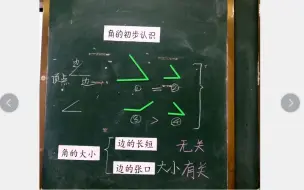 角的初步认识
边
顶点 边
① = ②
③ > ④
角的大小
边的长短 无关
边的张口 大小有关